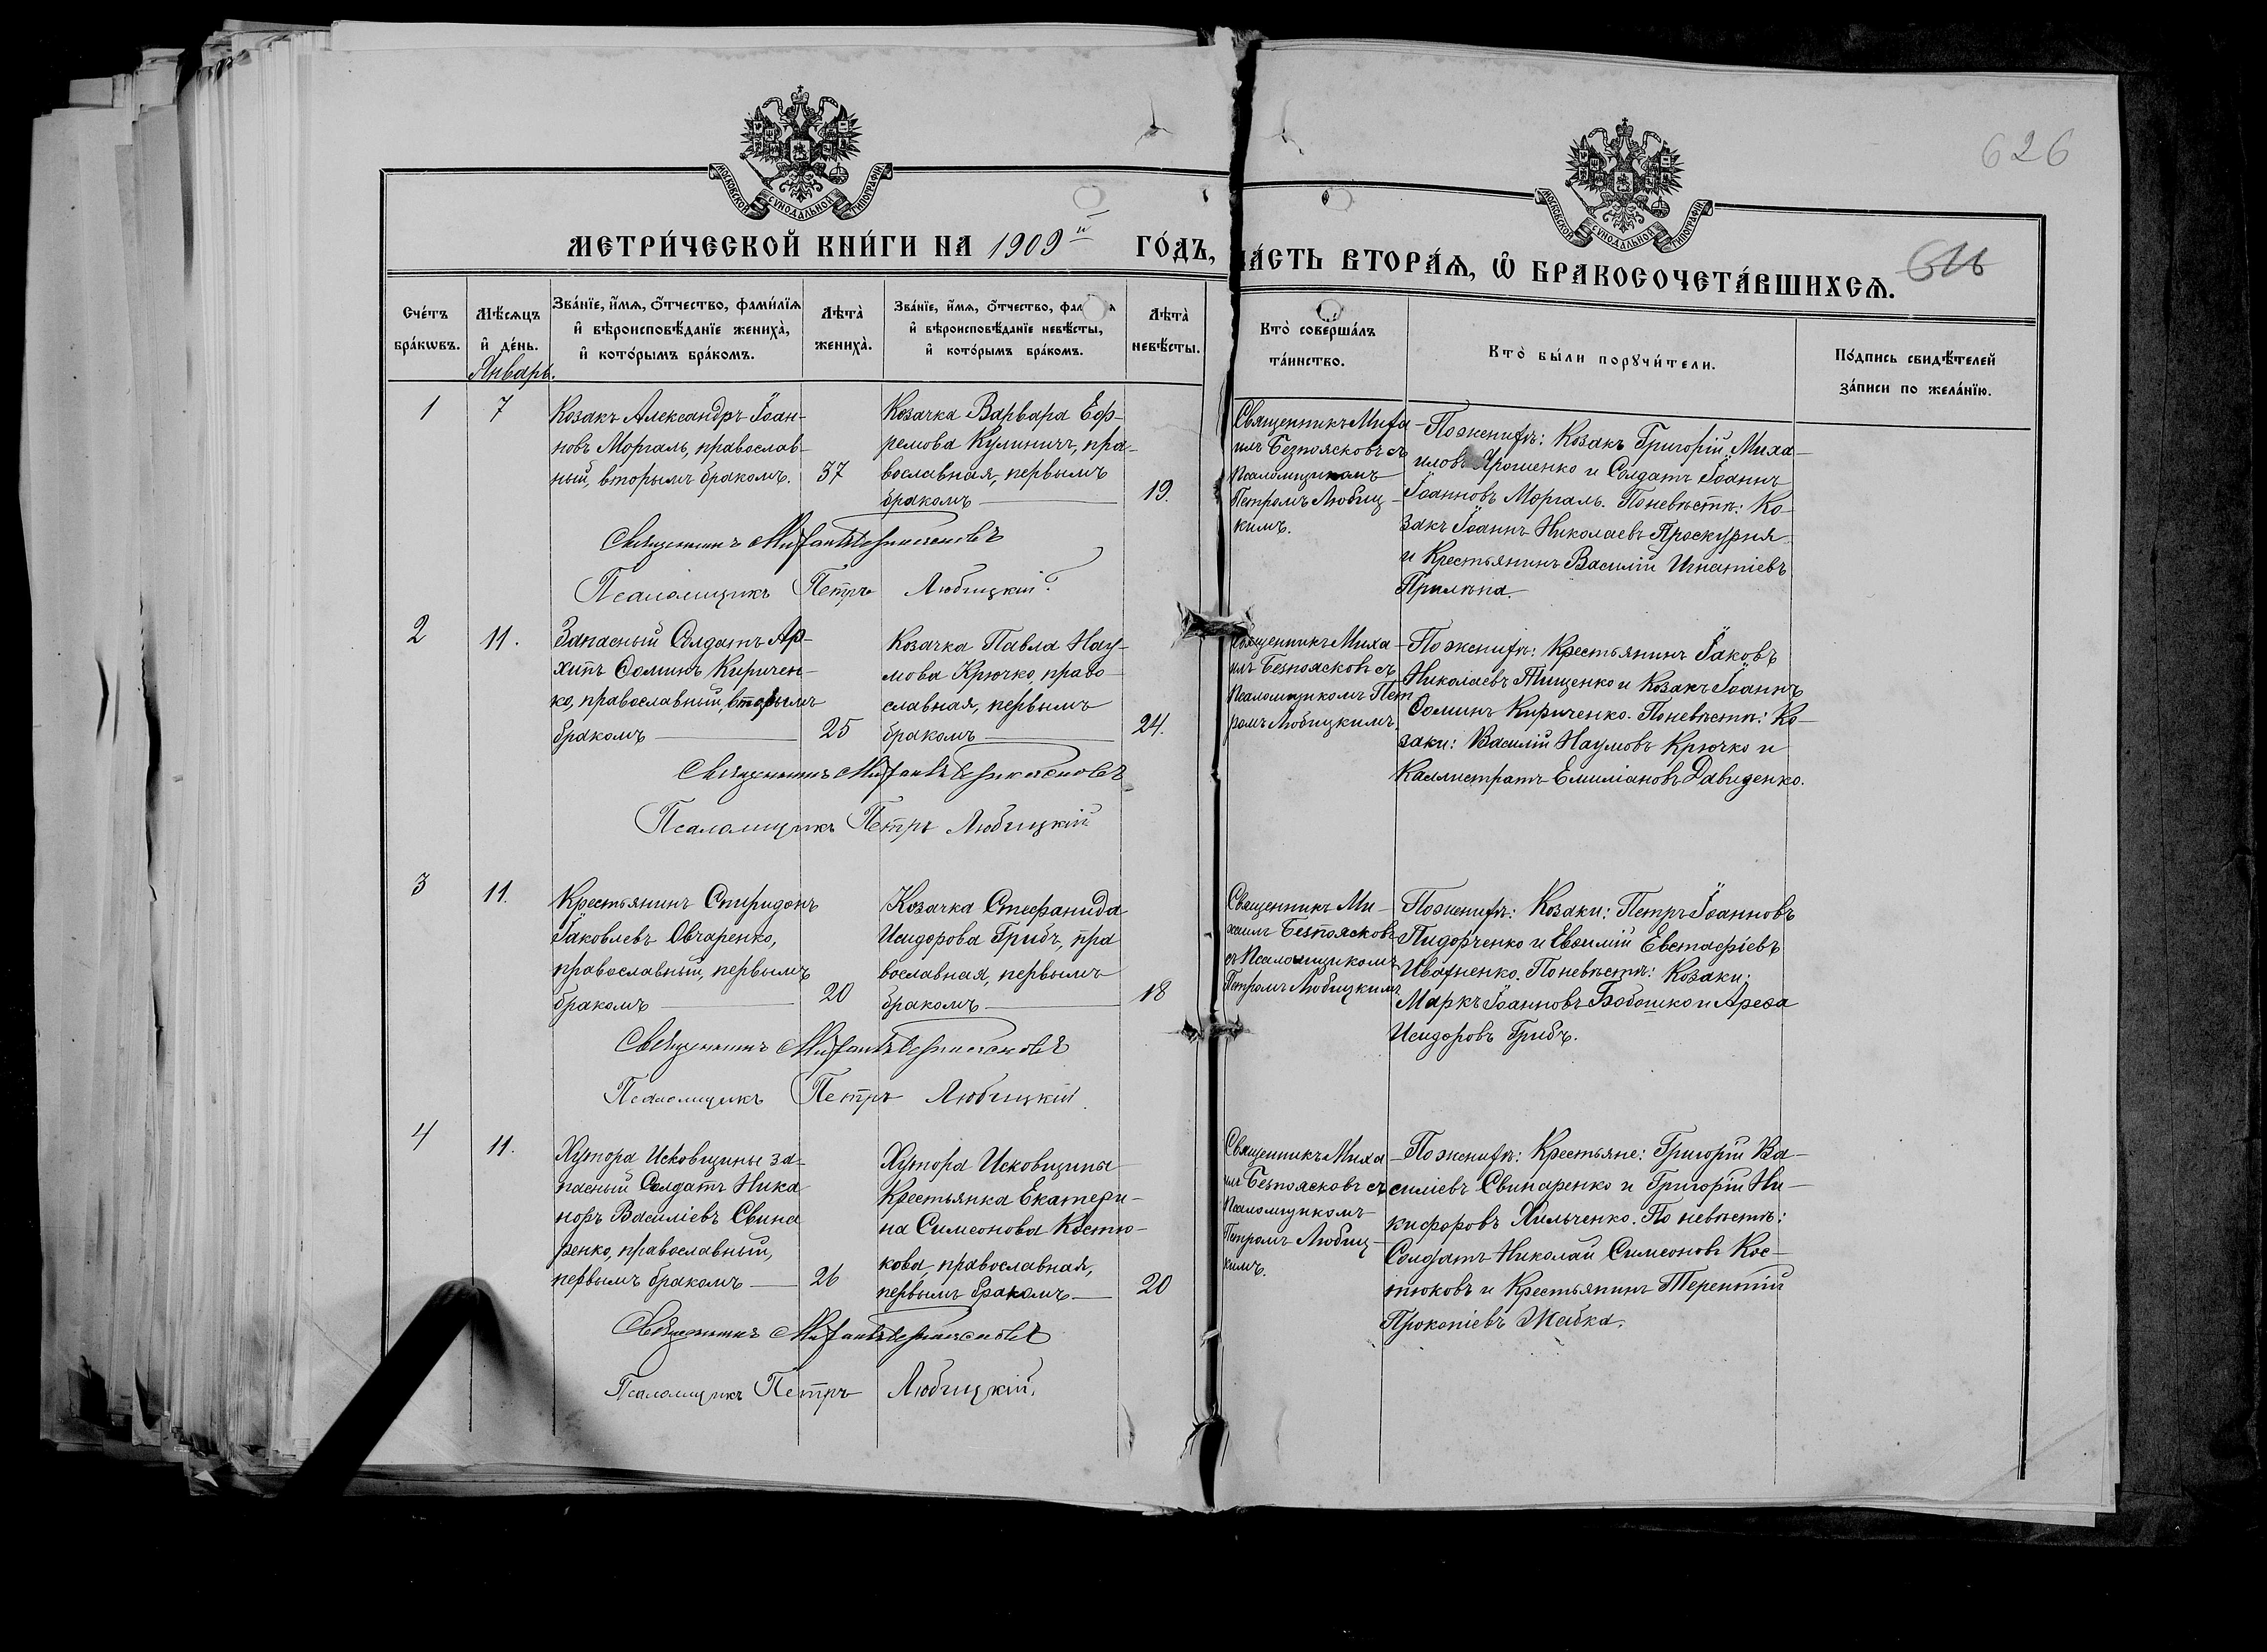 626
МОСКОВСКОЙ СѴНОДАЛЬНОЙ ТИПОГРАФІИ
МОСКОВСКОЙ СѴНОДАЛЬНОЙ ТИПОГРАФІИ
МЕТРИ́ЧЕСКОЙ КНИ́ГИ НА 1909й ГО́ДЪ, ЧА́СТЬ ВТОРА́Ѧ, Ѡ҆ БРАКОСОЧЕТА́ВШИХСѦ.
Сче́тъ бра́кѡвъ.
Мѣ́сѧцъ и҆ де́нь.
Январь.
Зва́нїе, и҆́мѧ, ѻ҆́тчество, фами́лїѧ
и҆ вѣроисповѣ́данїе жениха̀,
и҆ кото́рымъ бра́комъ.
Лѣ́та̀ жениха̀.
Зва́нїе, и҆́мѧ, ѻ҆́тчество, фами́лїѧ
и҆ вѣроисповѣ́данїе невѣ́сты,
и҆ кото́рымъ бра́комъ.
Лѣ́та̀ невѣ́сты.
Кто̀ соверша́лъ
та́инство.
Кто̀ бы́ли порꙋчи́тели.
По́дпись свидѣ́телей
за́писи по жела́нїю.
1
7
Козакъ Александръ Іоан-
новъ Моргаль, православ-
ный, вторымъ бракомъ.
37
Козачка Варвара Еф-
ремова Кулиничъ, пра-
вославная, первымъ
бракомъ
19.
Священникъ Миха
илъ Безпоясковъ съ
Псаломщикомъ
Петромъ Любиц-
кимъ.
По женихѣ: Козакъ Григорій Миха-
иловъ Ярошенко и Солдатъ Іоаннъ
Іоанновъ Моргаль. По невѣстѣ: Ко-
закъ Іоаннъ Николаевъ Проскурня
и Крестьянинъ Василій Игнатіевъ
Прилѣпа.
Священникъ Михаилъ Безпоясковъ
Псаломщикъ Петръ Любицкій.
2
11.
Запасный Солдатъ Ар-
хипъ Ѳоминъ Киричен-
ко, православный, вторымъ
бракомъ
25
Козачка Павла Нау-
мова Крючко, право-
славная, первымъ
бракомъ
24.
Священникъ Миха
илъ Безпоясковъ съ
Псаломщикомъ Пет
ромъ Любицкимъ.
По женихѣ: Крестьянинъ Іаковъ
Николаевъ Тищенко и Козакъ Іоаннъ
Ѳоминъ Кириченко. По невѣстѣ: Ко-
заки: Василій Наумовъ Крючко и
Каллистратъ Емиліановъ Давиденко.
Священникъ Михаилъ Безпоясковъ
Псаломщикъ Петръ Любицкій
3
11.
Крестьянинъ Спиридонъ
Іаковлевъ Овчаренко,
православный, первымъ
бракомъ
20
Козачка Стефанида
Исидорова Грибъ, пра
вославная, первымъ
бракомъ
18
Священникъ Ми-
хаилъ Безпоясковъ
съ Псаломщикомъ
Петромъ Любицкимъ
По женихѣ: Козаки: Петръ Іоанновъ
Пидорченко и Евѳимій Евстафіевъ
Ивахненко. По невѣстѣ: Козаки:
Маркъ Іоанновъ Бобошко и Арефа
Исидоровъ Грибъ.
Священникъ Михаилъ Безпоясковъ
Псаломщикъ Петръ Любицкій
4
11.
Хутора Исковщины за-
пасный Солдатъ Ника
норъ Василіевъ Свина
ренко, православный,
первымъ бракомъ
26
Хутора Исковщины
Крестьянка Екатери-
на Симеонова Костю-
кова, православная,
первымъ бракомъ
20
Священникъ Миха
илъ Безпоясковъ съ
Псаломщикомъ
Петромъ Любиц-
кимъ.
По женихѣ: Крестьяне: Григорій Ва-
силіевъ Свинаренко и Григорій Ни-
кифоровъ Хильченко. По невѣстѣ:
Солдатъ Николай Симеоновъ Кос-
тюковъ и Крестьянинъ Терентій
Прокопіевъ Жабка.
Священникъ Михаилъ Безпоясковъ
Псаломщикъ Петръ Любицкій.